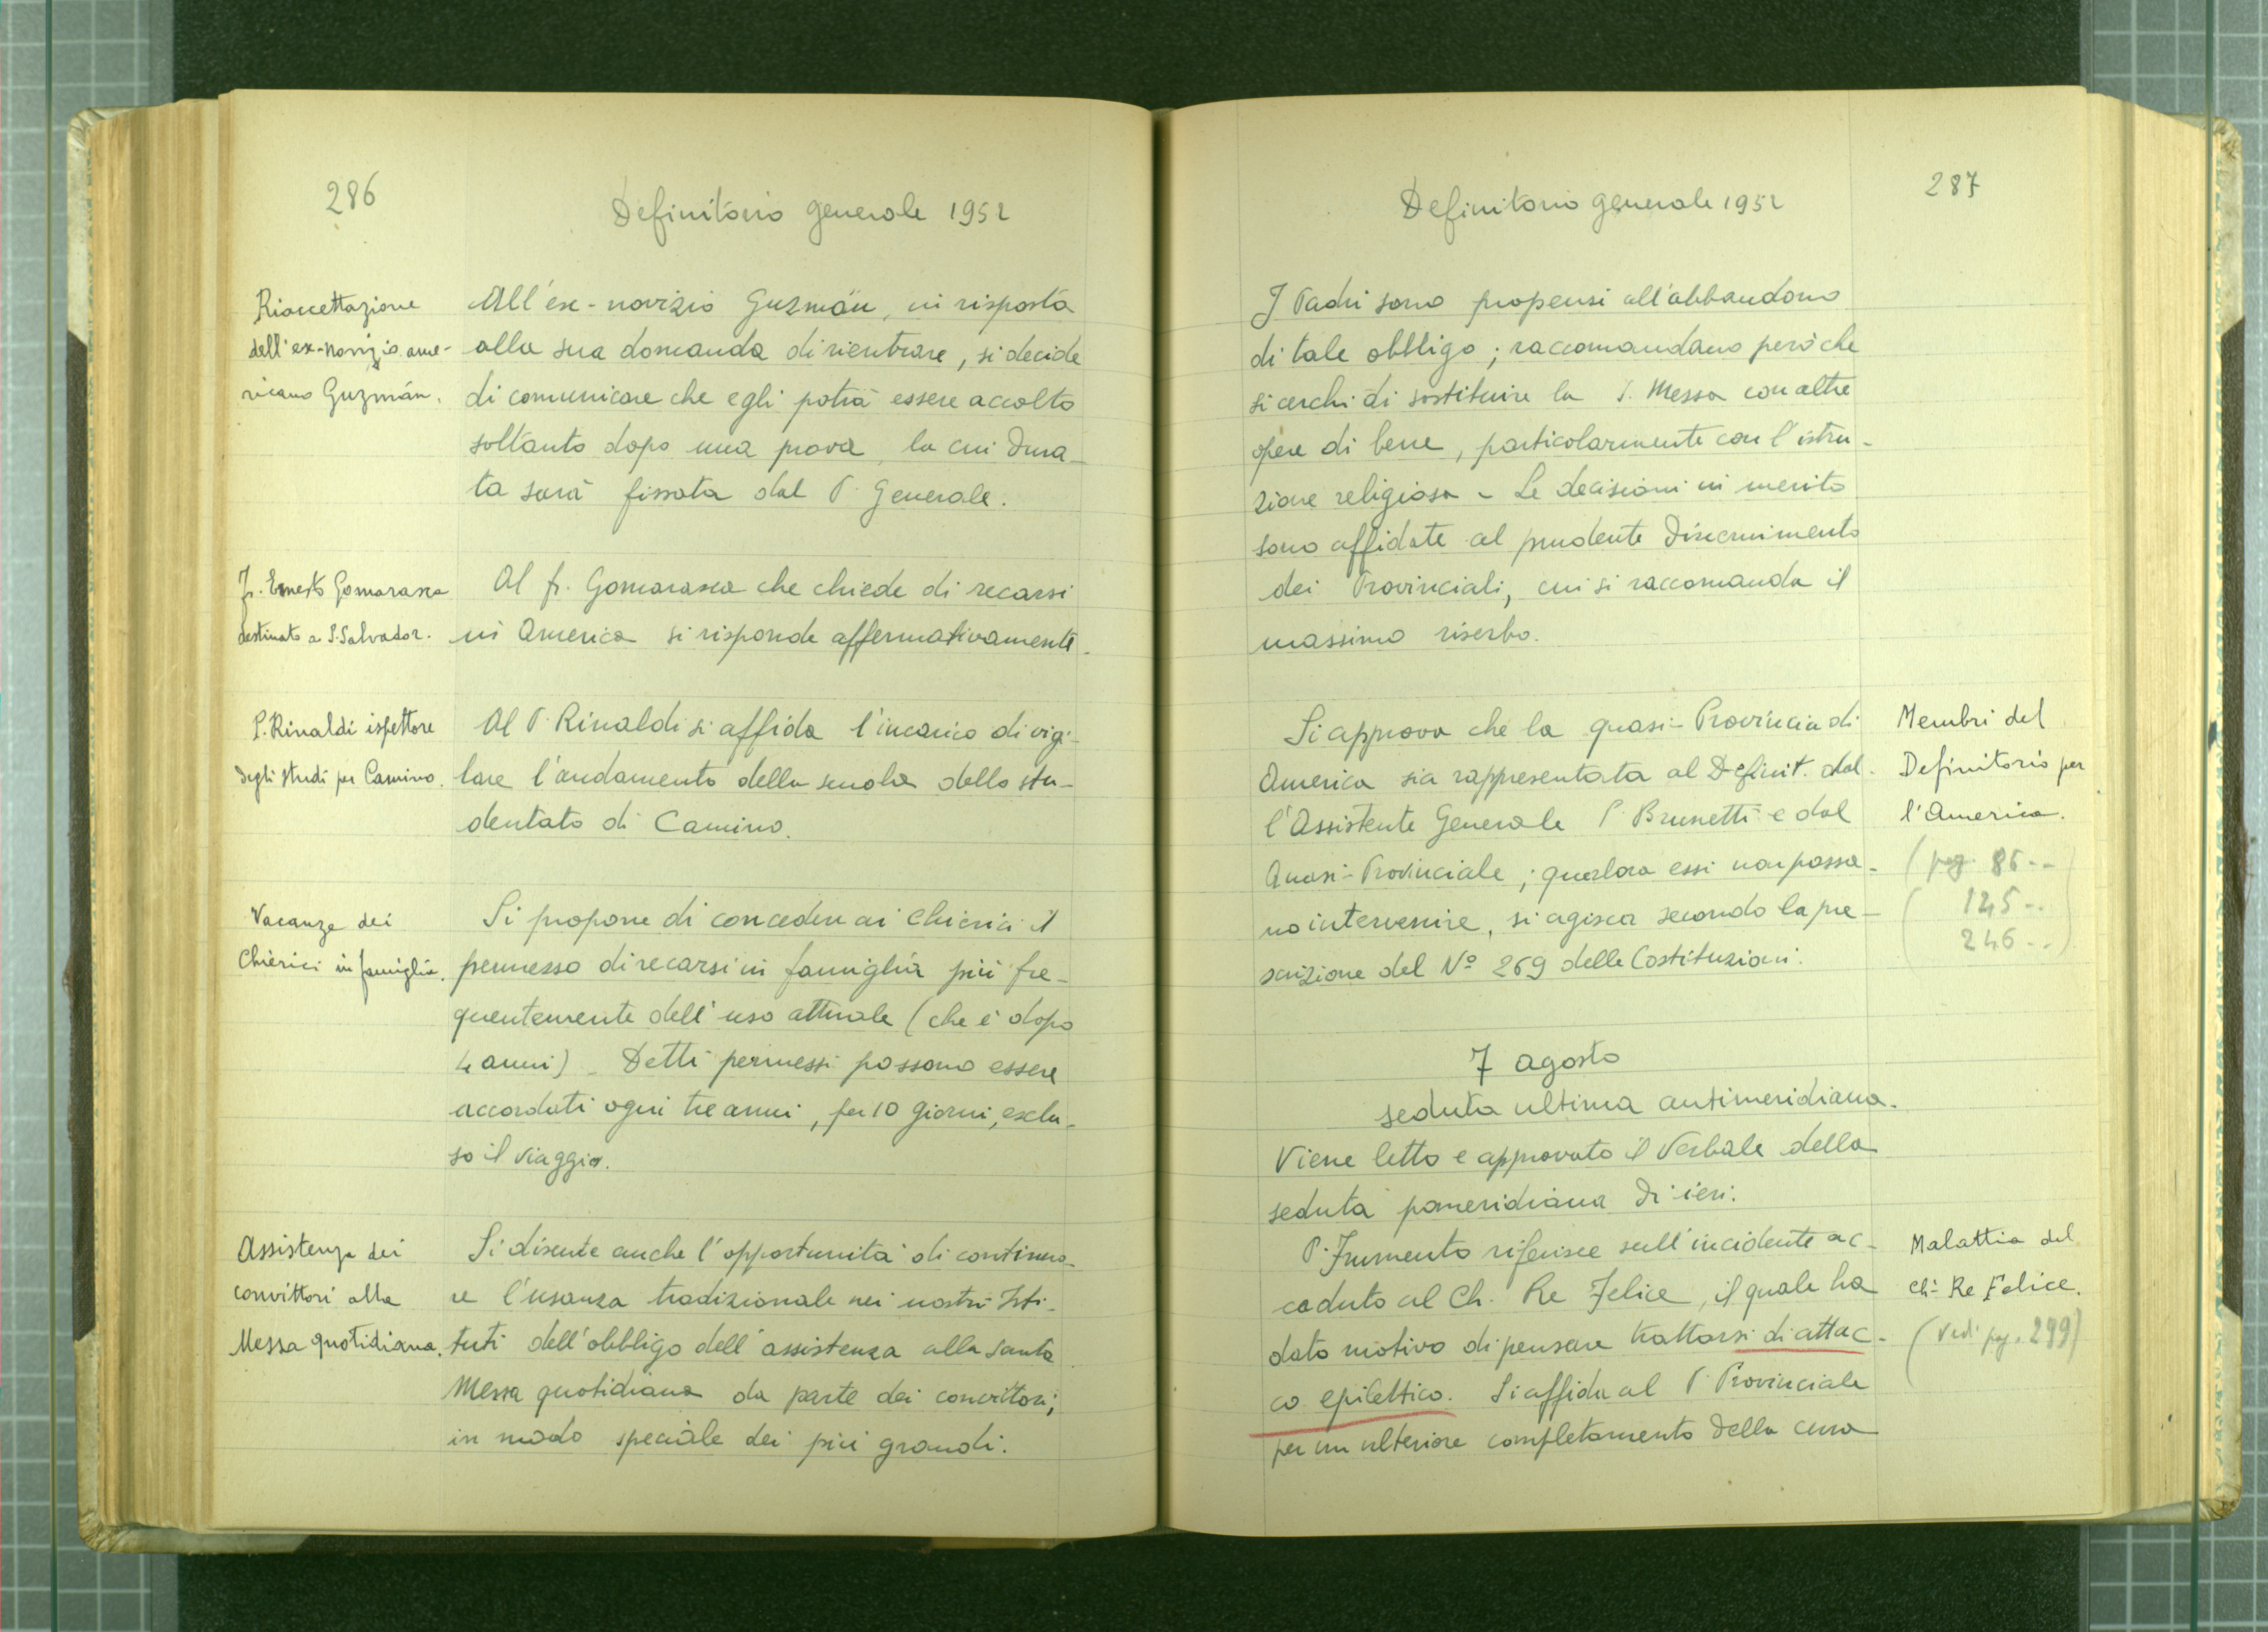 286
Definitorio generale 1952
Riaccettazione
dell'ex-novizio ame-
ricano Guzmán.
All'ex-novizio Guzmán, in risposta
alla sua domanda di rientrare, si decide
di comunicare che egli potrà essere accolto
soltanto dopo una prova, la cui dura-
ta sarà fissata dal P. Generale.
Fr. Ernesto Gomarasca
destinato a S. Salvador.
Al fr. Gomarasca che chiede di recarsi
in America si risponde affermativamente.
P. Rinaldi ispettore
degli studi per Camino.
Al P. Rinaldi si affida l'incarico di vigi-
lare l'andamento della scuola dello stu-
dentato di Camino.
Vacanze dei
Chierici in famiglia.
Si propone di concedere ai Chierici il
permesso di recarsi in famiglia più fre-
quentemente dell'uso attuale (che è dopo
4 anni) - Detti permessi possono essere
accordati ogni tre anni, per 10 giorni, esclu-
so il viaggio.
Assistenza dei
convittori alla
Messa quotidiana.
Si discute anche l'opportunità di continua-
re l'usanza tradizionale nei nostri Isti-
tuti dell'obbligo dell'assistenza alla Santa
Messa quotidiana da parte dei convittori;
in modo speciale dei più grandi.
Definitorio generale 1952
287
I Padri sono propensi all'abbandono
di tale obbligo; raccomandano però che
si cerchi di sostituire la S. Messa con altre
opere di bene, particolarmente con l'istru-
zione religiosa - Le decisioni in merito
sono affidate al prudente discernimento
dei Provinciali, cui si raccomanda il
massimo riserbo.
Si approva che la quasi-Provincia di
America sia rappresentata al Definit. dal-
l'Assistente Generale P. Brunetti e dal
Quasi-Provinciale; qualora essi non possa-
no intervenire, si agisca secondo la pre-
scrizione del Nº 269 delle Costituzioni.
Membri del
Definitorio per
l'America.
(pag. 86--
125--
246--)
7 agosto
seduta ultima antimeridiana.
Viene letto e approvato il Verbale della
seduta pomeridiana di ieri.
P. Frumento riferisce sull'incidente ac-
caduto al Ch. Re Felice, il quale ha
dato motivo di pensare trattarsi di attac-
co epilettico. Si affida al P. Provinciale
per un ulteriore completamento della cura
Malattia del
Ch. Re Felice.
(Vedi pag. 299)